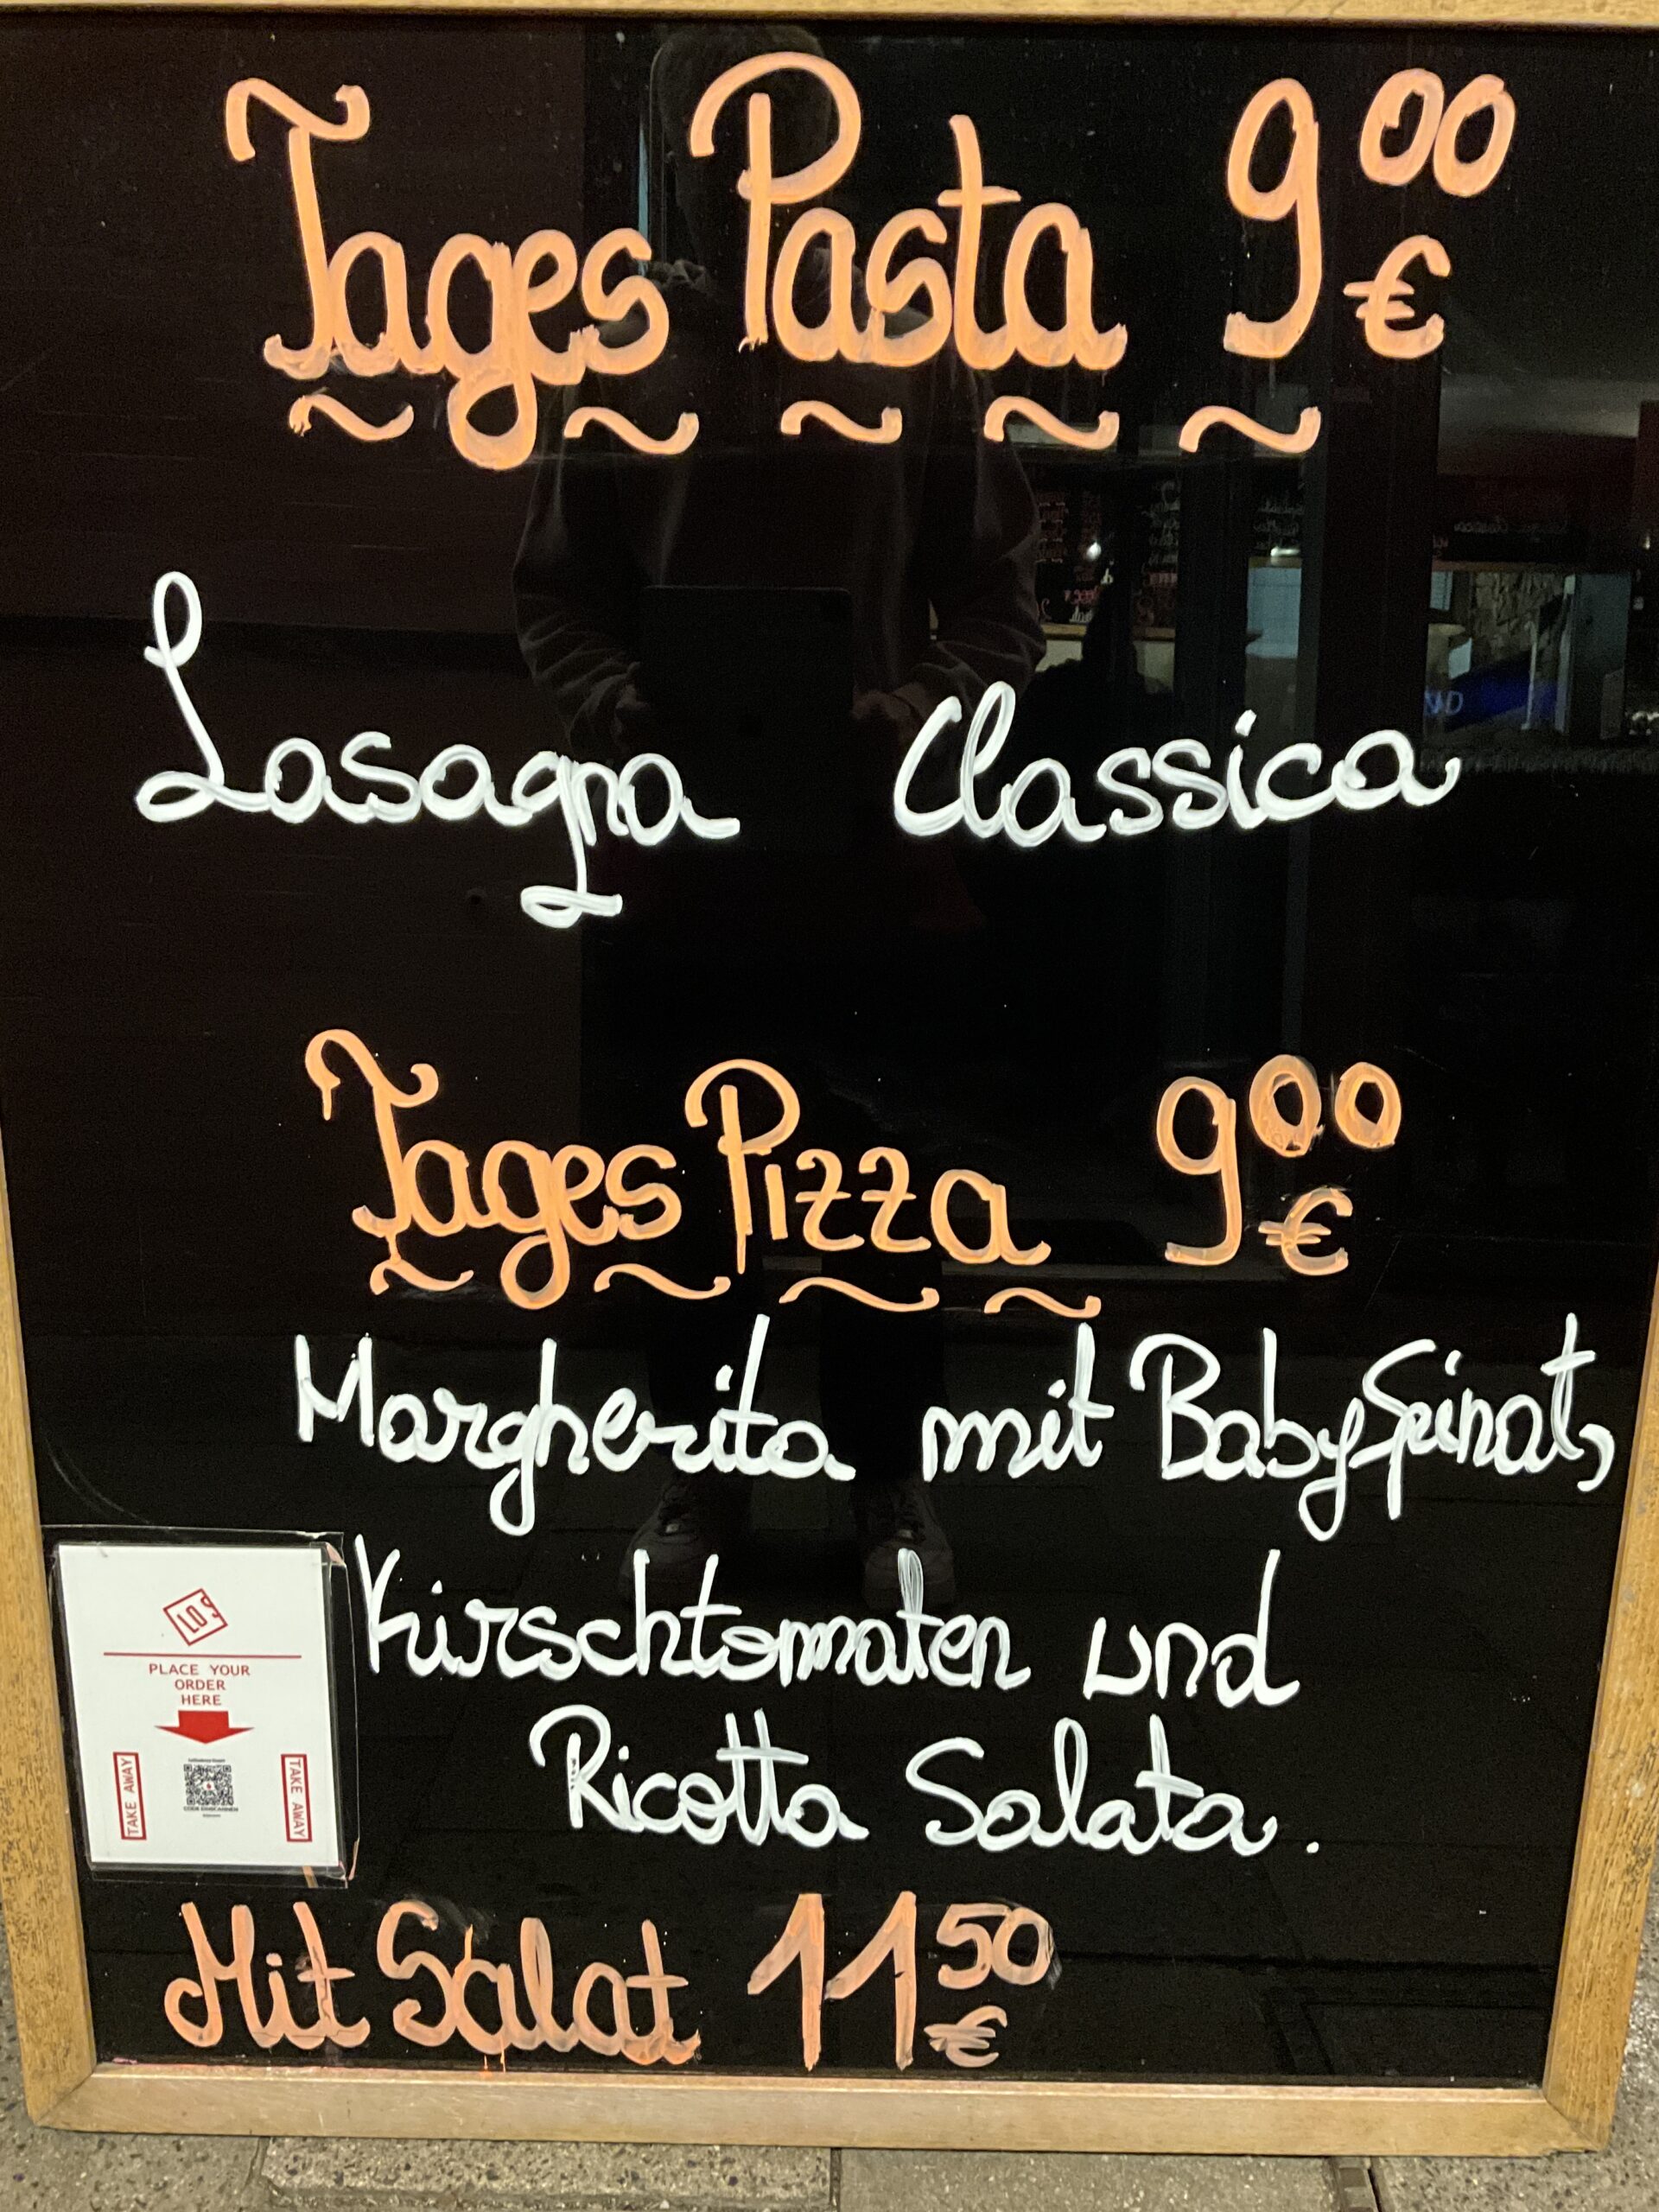 Tages Pasta 9⁰⁰ €
Lasagna Classica
Tages Pizza 9⁰⁰ €
Margherita mit BabySpinat,
Kirschtomaten und
Ricotta Salata.
LOS
PLACE YOUR
ORDER
HERE
TAKE AWAY
TAKE AWAY
Mit Salat 11⁵⁰ €